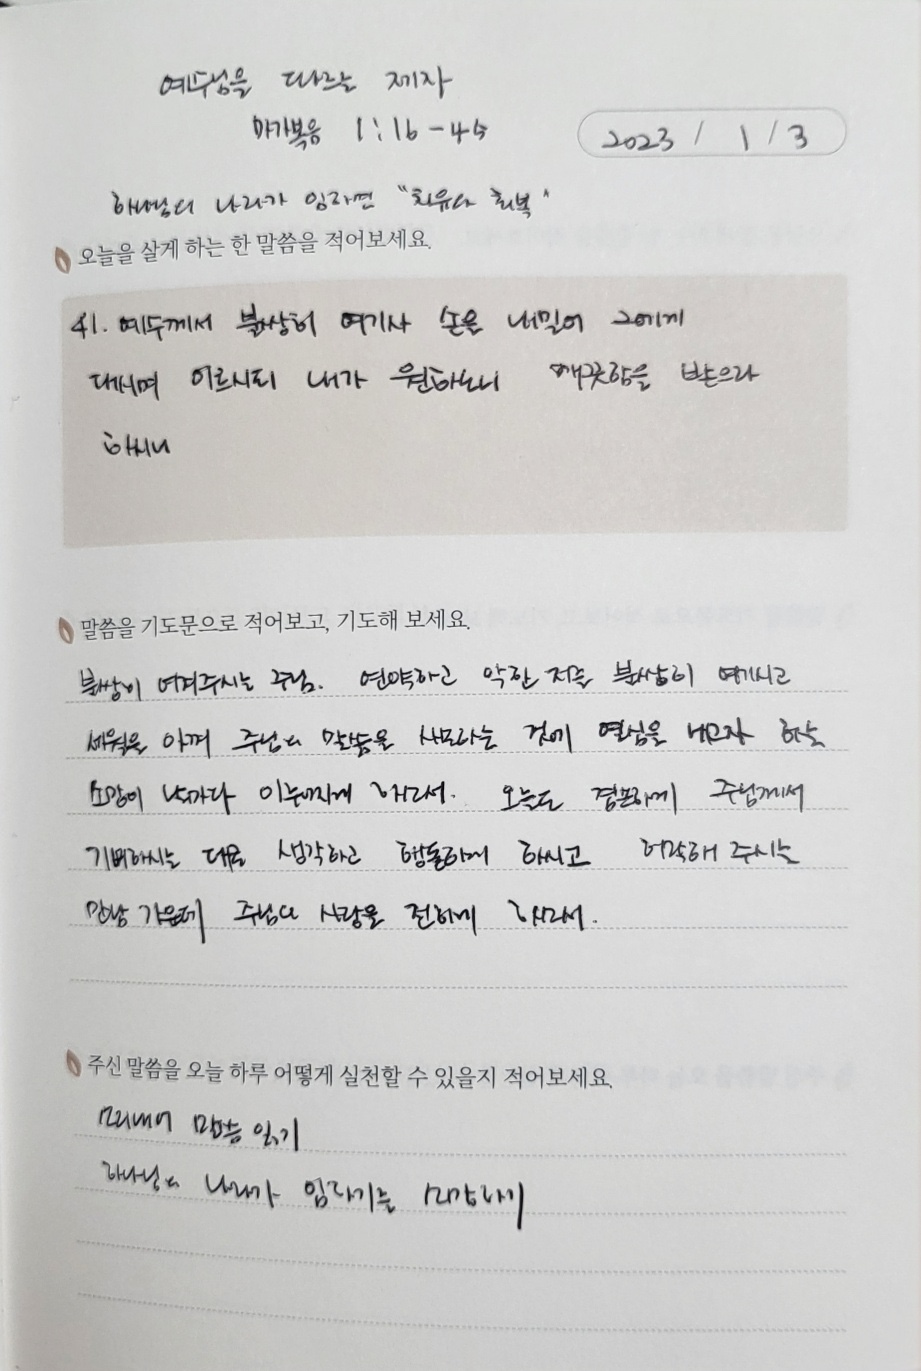 예수님을 따르는 제자
마가복음 1:16-45
2023 / 1 / 3
하나님의 나라가 임하면 "치유와 회복"
오늘을 살게 하는 한 말씀을 적어보세요.
41. 예수께서 불쌍히 여기사 손을 내밀어 그에게
대시며 이르시되 내가 원하노니 깨끗함을 받으라
하시니
말씀을 기도문으로 적어보고, 기도해 보세요.
불쌍히 여겨주시는 주님. 연약하고 악한 저를 불쌍히 여기시고
세월을 아껴 주님의 말씀을 사모하는 것에 열심을 내고자 하는
소망이 하소서. 오늘도 겸손하게 주님께서
기뻐하시는 대로 생각하고 행동하게 하시고 허락해 주시는
만남 가운데 주님의 사랑을 전하게 하소서.
주신 말씀을 오늘 하루 어떻게 실천할 수 있을지 적어보세요.
말씀 읽기
하나님의 나라가 임하기를